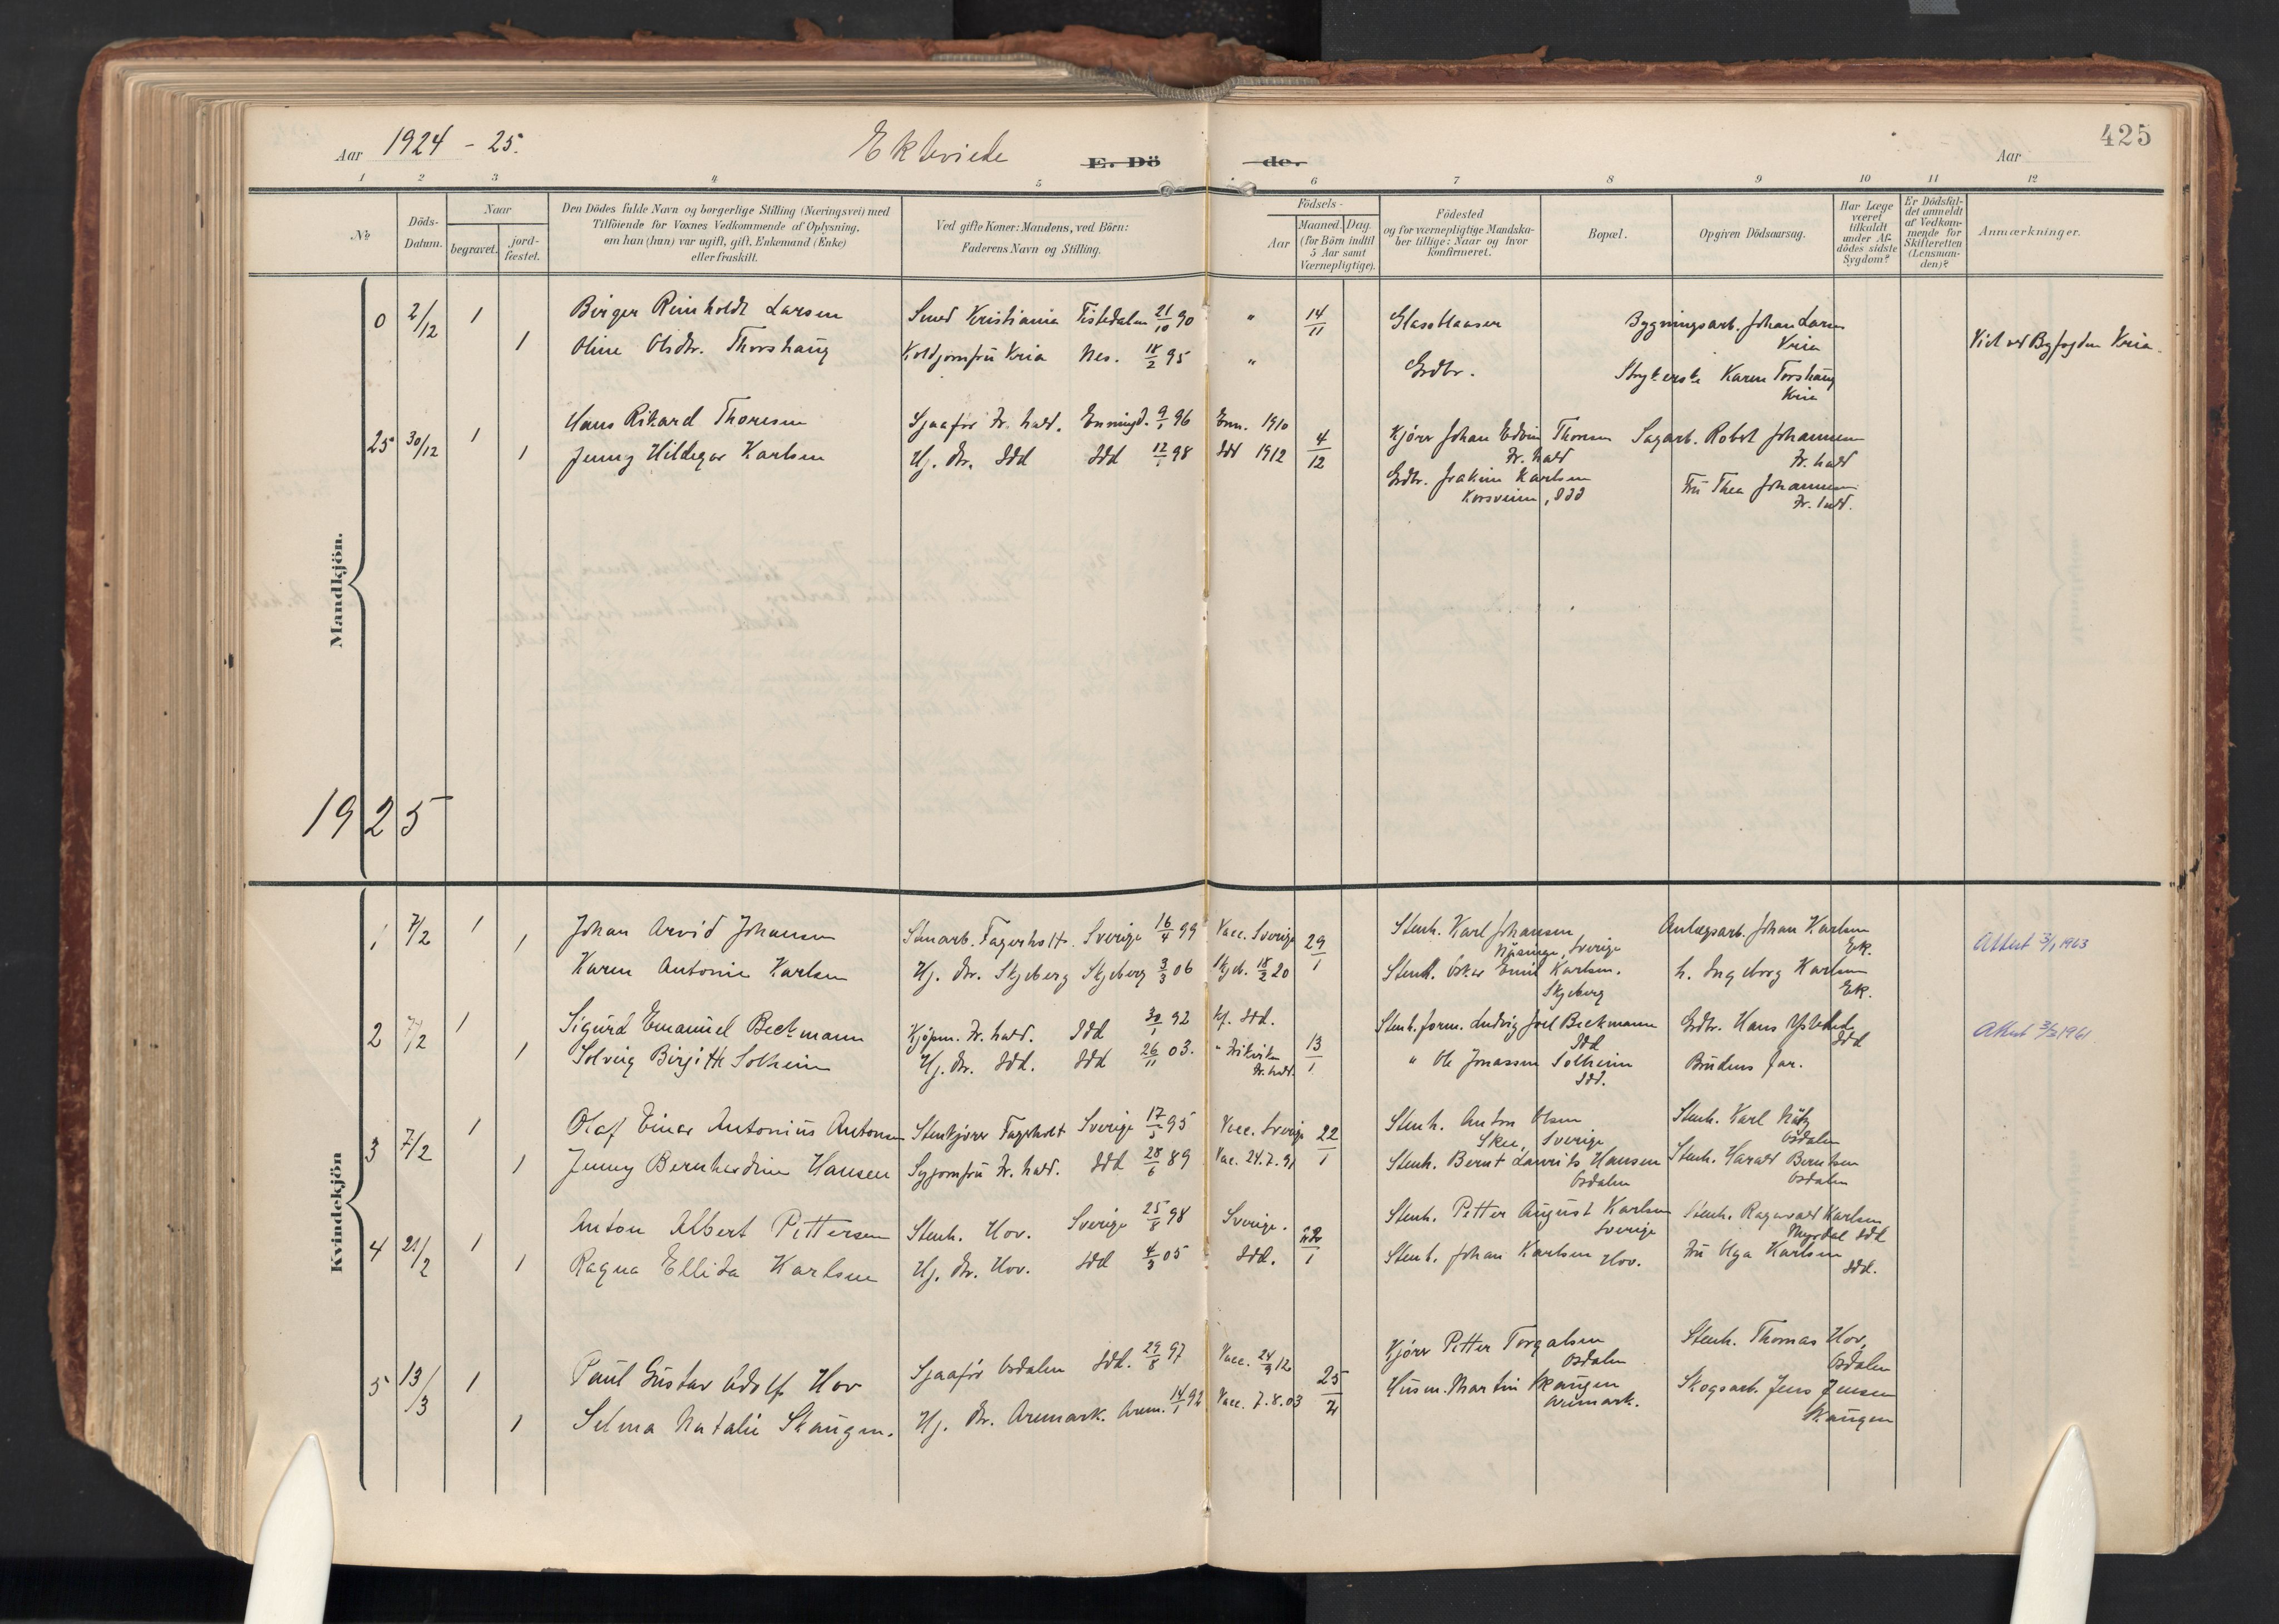 425
Aar 1924 - 25.
Ekteviede
E. Dö de.
Aar
1 2 3 4 5 6 7 8 9 10 11 12
№
Döds-Datum.
Naar
begravet.
jord-fæstet.
Den Dödes fulde Navn og borgerlige Stilling (Næringsvei) med
Tilföiende for Voxnes Vedkommende af Oplysning,
om han (hun) var ugift, gift, Enkemand (Enke)
eller fraskilt.
Ved gifte Koner: Mandens, ved Börn:
Faderens Navn og Stilling.
Födsels-
Aar
Maaned. Dag.
(for Börn indtil
5 Aar samt
Værnepligtige).
Födested
og for værnepligtige Mandska-
ber tillige: Naar og hvor
konfirmeret.
Bopæl.
Opgiven Dödsaarsag.
Har Læge
været
tilkaldt
under Af-
dödes sidste
Sygdom?
Er Dödsfal-
det anmeldt
af Vedkom-
mende for
Skifteretten
(Lensman-
den)?
Anmærkninger.
Mandkjön.
0 2/12 1 Birger Reinholdt Larsen Smed Kristiania Tistedalen 21/10 90 " 14/11 Glass Bygningsarb. Johan Larsen
Kria
1 Oline Olsdtr. Thorshaug Kria Nes. 18/2 95 " Grdbr. Karen Torshaug
Kria
Viet ved Byfogden Kria.
25 30/12 1 Hans Rikard Thoresen Sjaafør Fr. hald. Enningd. 9/1 96 Enn. 1910 4/12 Kjörer Johan Edvin Thoresen Sagarb. Robert Johannesen
Fr. hald Fr. hald
1 Jenny Hildegar Karlsen Hj. dtr. Idd Idd 12/1 98 Idd 1912 Grdbr. Joakim Karlsen Fru Thea Johannesen
Korsveien, Idd Fr. hald.
1925
Kvindekjön
1 7/2 1 Johan Arvid Johansen Stenarb. Fagerholt. Sverige 16/4 99 Vacc. Sverige 29/1 Stenh. Karl Johansen Anlægsarb. Johan Karlsen
Näsinge, Sverige Ek.
1 Karen Antonie Karlsen Hj. dtr. Skjeberg Skjeberg 3/3 06 Skjeb. 18/2 20 Stenh. Oskar Emil Karlsen. h. Ingeborg Karlsen
Skjeberg Ek.
Attest 3/1 1963
2 7/2 1 Sigurd Emanuel Beckmann Kjøpm. Fr. hald. Idd 30/1 92 Kf. Idd. 13/1 Stenh. form. Ludvig Joel Beckmann Grdbr. Hans
Idd Idd
1 Solveig Birgitte Solheim Hj. dtr. Idd. Idd 26/11 03. " Fr. hald. " Ole Jonassen Solheim Brudens far.
Idd.
Attest 3/2 1961
3 7/2 1 Olaf Einar Antonius Antonsen Stenkjører Fagerholt Sverige 17/5 95 Vacc. Sverige 22/1 Stenh. Anton Olsen Stenh. Karl
Skee, Sverige Osdalen
1 Jenny Bernhardine Hansen Syjomfru Fr. hald. Idd 28/6 89 Vac. 24.7.91 Stenh. Bernt Laurits Hansen Stenh. Harald Berntsen
Osdalen Osdalen
4 21/2 1 Anton Albert Pettersen Stenh. Hov. Sverige 25/8 98 Sverige. Stenh. Petter August Karlsen Stenh. Ragnvald Karlsen
Sverige Myrdal Idd
1 Ragna Ellida Karlsen Hj. dtr. Hov. Idd 4/3 05 Idd. Stenh. Johan Karlsen Hov. Fru Olga Karlsen
Idd.
5 13/3 1 Paul Gustav Adolf Hov Sjaafør Osdalen Idd. 29/8 97 Vacc. 24/9 12 25/2 Kjörer Petter Torgalsen Stenh. Thomas Hov,
Osdalen Osdalen
1 Selma Natalie Skaugen. Hj. dtr. Aremark. Arem. 14/1 92 Vacc. 7.8.03 Husm. Martin Skaugen Skogsarb. Jens Jensen
Aremark. Skaugen